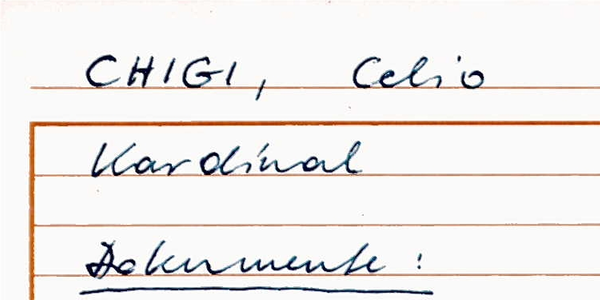 CHIGI, Celio
Kardinal
Dokumente: